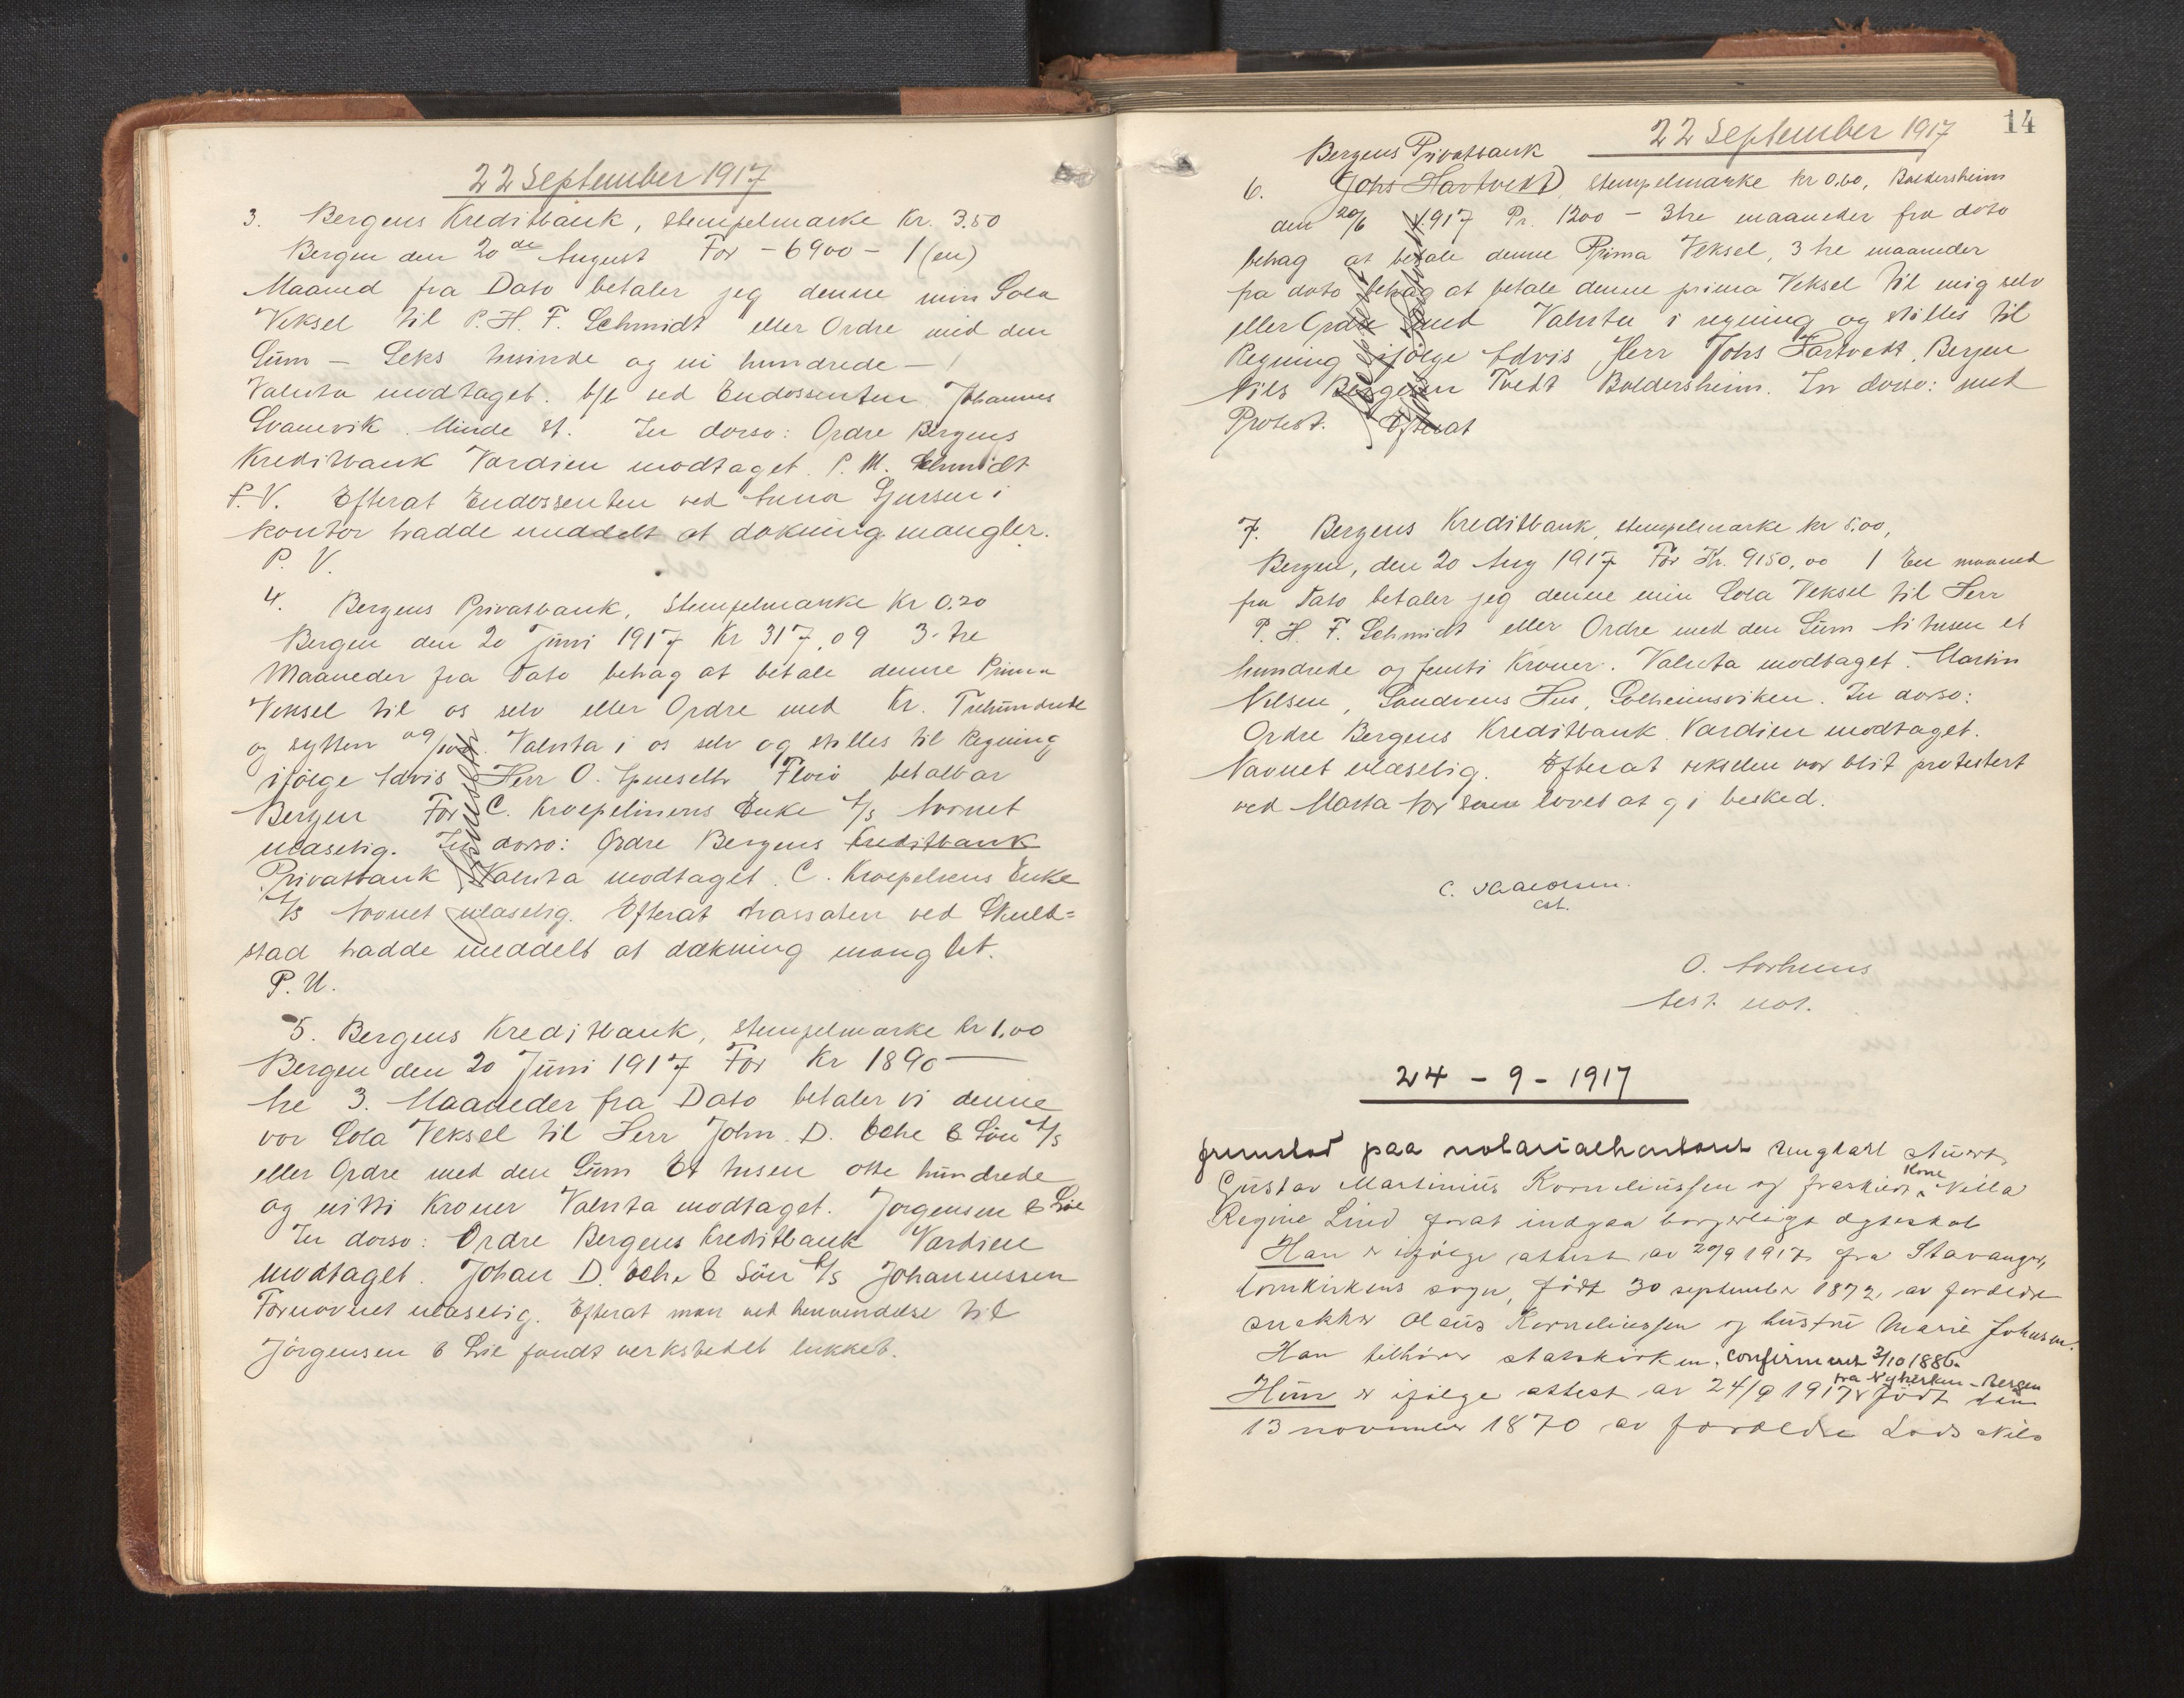 22 September 1917
3. Bergens Kreditbank, stempelmarke Kr. 3.50
Bergen den 20de August For - 6900 - 1 (en)
Maaned fra Dato betaler jeg denne min Sola
Veksel til P. H. F. Schmidt eller Ordre med den
Sum - Seks tusinde og ni hundrede -
Valuta modtaget. ved Endossenten Johannes
Svanevik. Minde st. In dorso: Ordre Bergens
Kreditbank Værdien modtaget. P. M. Schmidt
P. V. Efterat Endossenten ved Anna i
kontor hadde meddelt at dækning mangler.
P. V.
4. Bergens Privatbank, Stempelmærke Kr 0.20
Bergen den 20 Juni 1917 Kr 317,09 3. tre
Maaneder fra Dato behag at betale denne Prima
Veksel til os selv eller Ordre med Kr. Trehundrede
og sytten 09/100. Valuta i os selv og stilles til Regning
ifölge Advis Herr O. Florö betalbar
Bergen For C. Kroepeliens Enke A/s Navnet
ulæselig. In dorso: Ordre Bergens Kreditbank
Privatbank Valuta modtaget. C. Kroepeliens Enke
A/s Navnet ulæselig. Efterat trassaten ved Skuld-
stad hadde meddelt at dækning manglet.
P. U.
5. Bergens Kreditbank, stempelmarke kr 1.00
Bergen den 20 Juni 1917 For Kr 1890 -
tre 3. Maaneder fra Dato betaler vi denne
vor Sola Veksel til Herr John. D. Behr & Sön A/s
eller Ordre med den Sum Et tusen otte hundrede
og nitti Kroner Valuta modtaget. Jorgensen & Lie
In dorso: Ordre Bergens Kreditbank Værdien
modtaget. Johan D. Behr & Sön A/s Johannessen
Fornavnet ulæselig. Efterat man ved henvendelse til
Jörgensen & Lie fandt verkstedet lukket.
14
22 September 1917
Bergens Privatbank
6. Johs Hartvedt stempelmarke kr 0.60, Baldersheim
den 20/6 1917 Pr. 1200 - 3 tre maaneder fra dato
behag at betale denne Prima Veksel, 3 tre maaneder
fra dato behag at betale denne prima Veksel til mig selv
eller Ordre med Valuta i regning og stilles til
Regning ifölge Advis Herr Johs Hartvedt. Bergen
Nils Bergesen Tvedt Baldersheim. In dorso: uten
Protest. Efterat
7. Bergens Kreditbank, stempelmarke kr 5.00,
Bergen, den 20 Aug 1917 For Kr. 9150,00 1 En maaned
fra Dato betaler jeg denne min Sola Veksel til Herr
P. H. F. Schmidt eller Ordre med den Sum Ni tusen et
hundrede og femti Kroner. Valuta modtaget. Martin
Nilsen, Sandvens Hus, Solheimsviken. In dorso:
Ordre Bergens Kreditbank. Værdien modtaget.
Navnet ulæselig. Efterat vekselen var blit protestert
ved Marta som lovet at gi besked.
C.
O. Aarhuus
test. not.
24 - 9 - 1917
fremstod paa notarialkontoret ungkarl
Gustav Martinius Korneliussen og fraskilt Kone Nilla
Regine Lind forat indgaa borgerligt egteskab
Han er ifölge attest av 20/9 1917 fra Stavanger,
Domkirkens sogn, född 30 september 1872, av foreldre
snekker Olaus Korneliussen og hustru Marie Johnsen.
Han tilhörer statskirken. Confirmeret 3/10 1886.
fra Nykirken - Bergen
Hun er ifölge attest av 24/9 1917 född den
13 november 1870 av foreldre Lods Nils